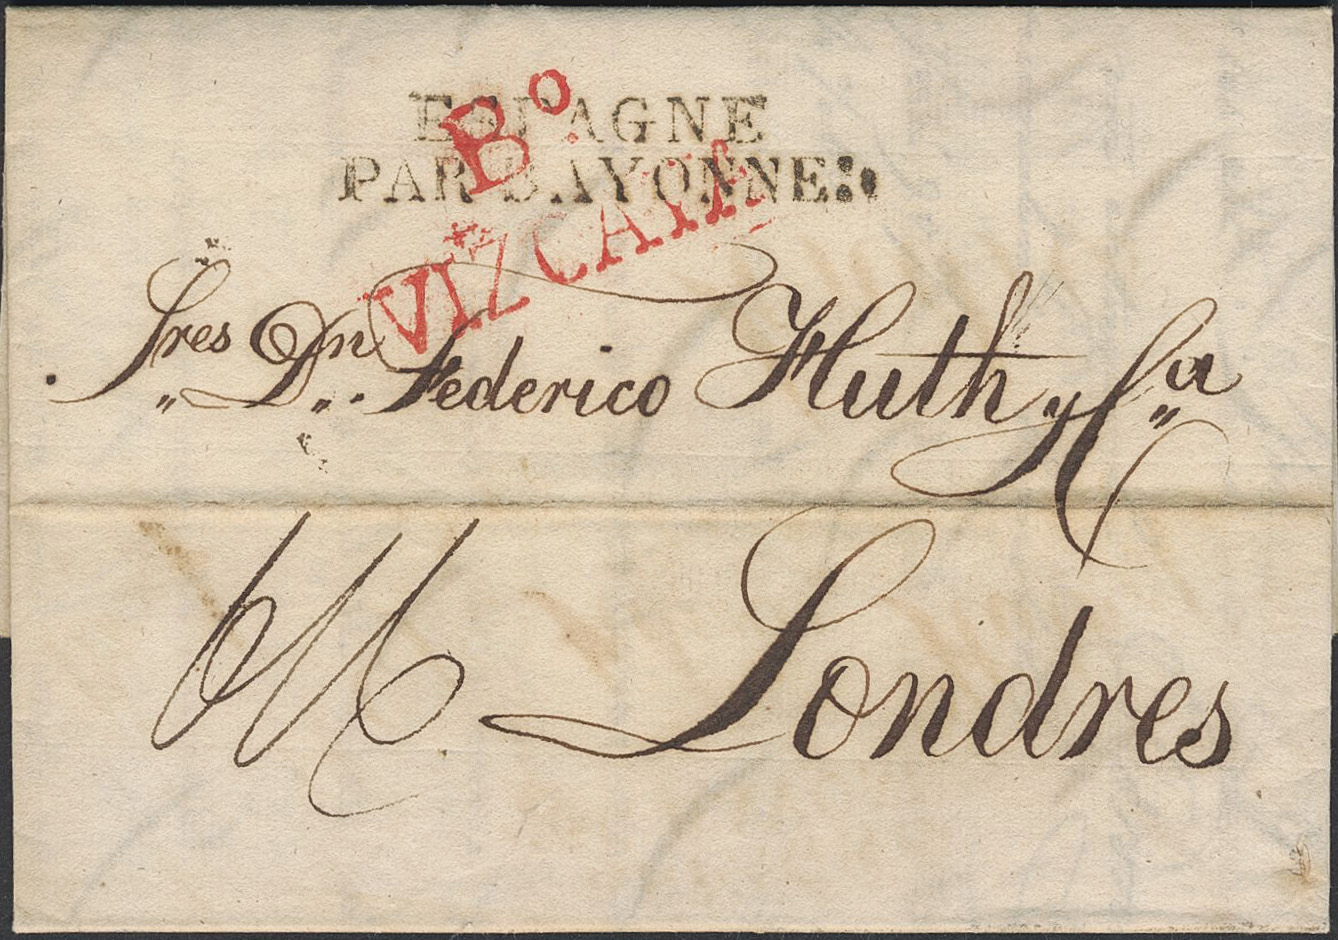 ESPAGNE
PAR BAYONNE
Bº
VIZCAYA
Sres Dn Federico Huth y Cª
Londres